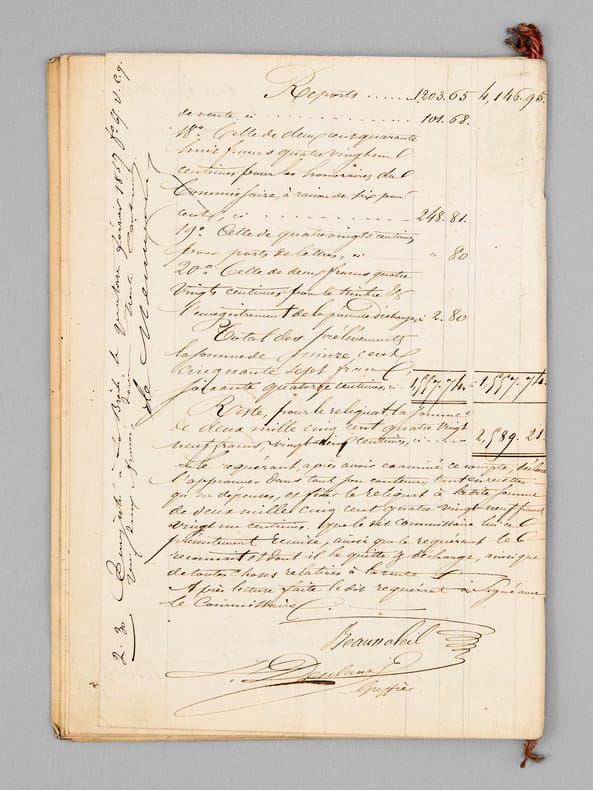 Reports ...... 1203.65 4,146.95.
de vente, ci .......... 101.68.
18º. Celle de deux cent quarante
huit francs quatre vingt un
centimes pour les honoraires du
Commissaire, à raison de six pour
cent, ci .......... 248.81.
19º. Celle de quatre vingts centimes
pour ports de lettres, ci " 80
20º. Celle de deux francs quatre
vingts centimes pour le timbre &
l'enregistrement de la présente décharge, ci 2.80
Total des prélèvements
la somme de quinze cent
cinquante sept francs
soixante quatorze centimes, ci 1,557.74. 1,557.74.
Reste, pour le reliquat, la somme
de deux mille cinq cent quatre vingt
neuf francs, vingt un centimes, ci 2,589.21.
Le requérant, après avoir examiné ce compte, déclare
l'approuver dans tout son contenu, tant en recettes
qu'en dépenses, et fixer le reliquat à ladite somme
de deux mille cinq cent quatre vingt neuf francs
vingt un centimes, que le dit commissaire lui a
présentement remise, ainsi que le requérant le
reconnait et dont il le quitte & décharge, ainsi que
de toutes choses relatives à la vente
Après lecture faite le dit requérant a signé avec
le Commissaire
Beausoleil
Greffier.
Enregistré à février 1869 fº 9 Vº C. 9.